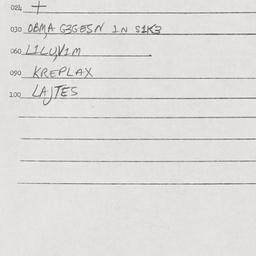 024 +
030 OBM,A G3GESN IN S1K3
060 L1LU,V1M
090 KREPLAX
100 LAJTES